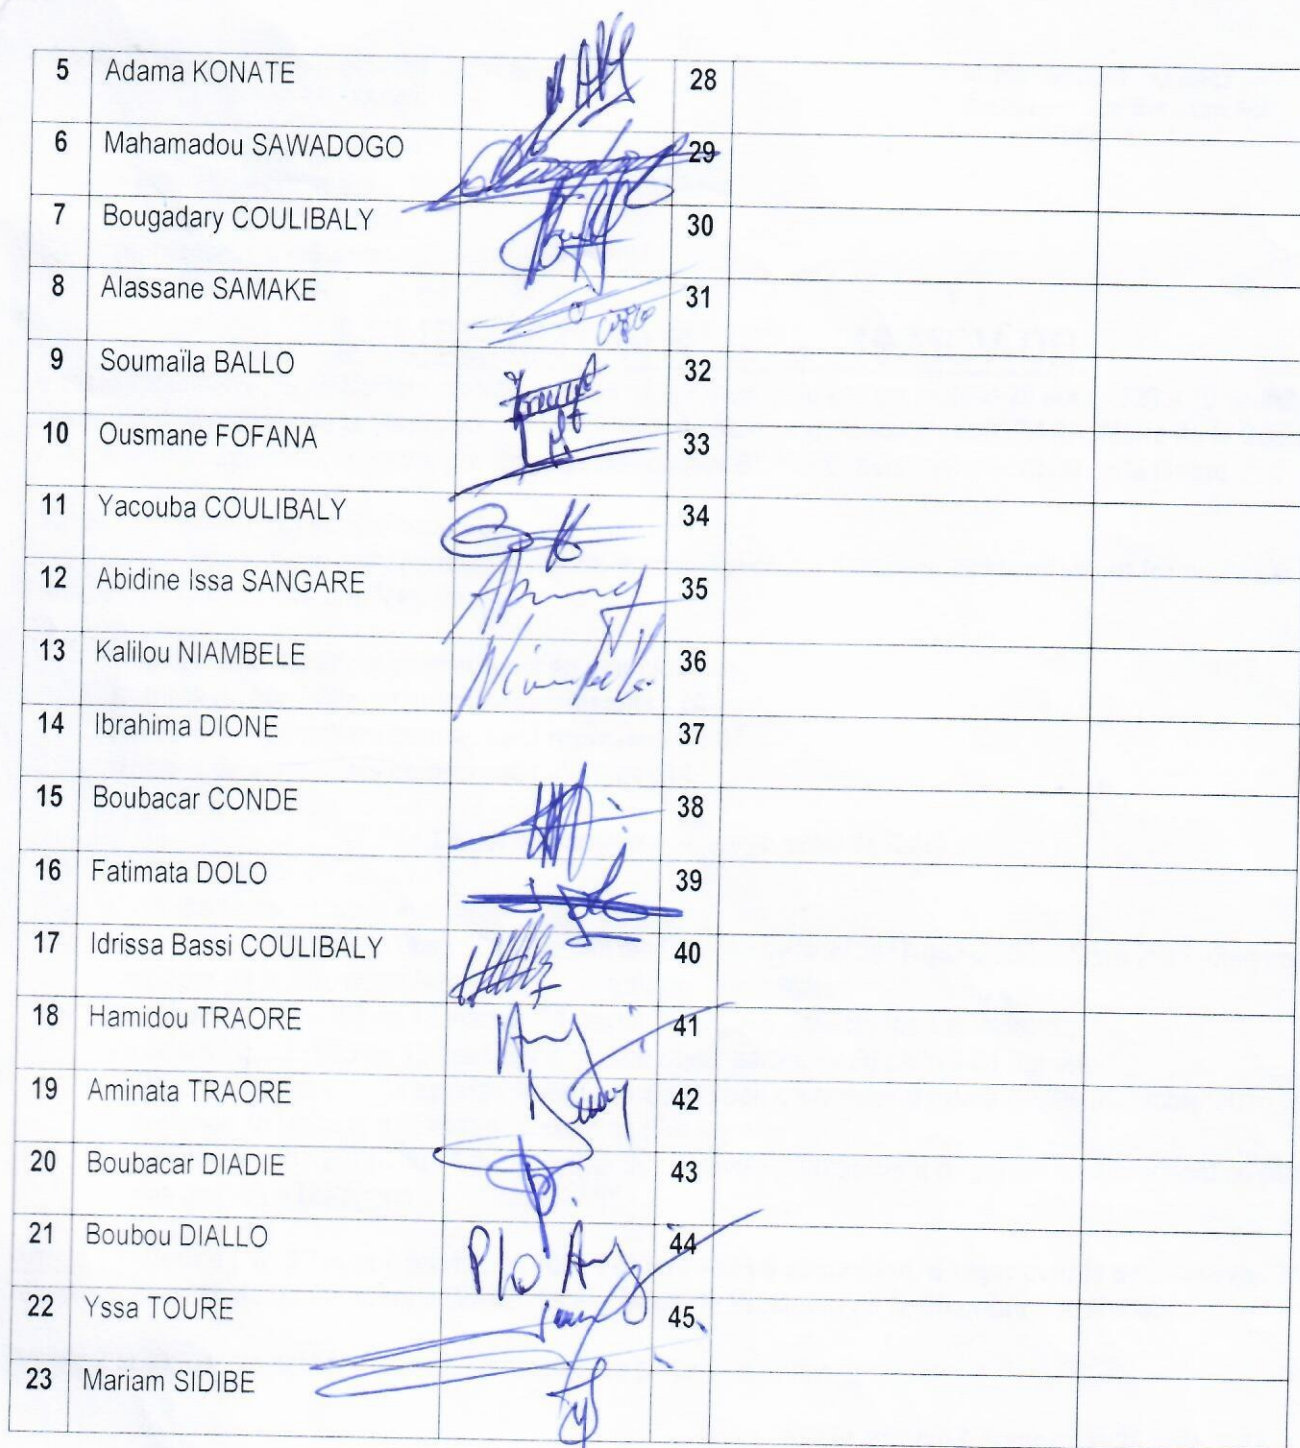 5 Adama KONATE 28
6 Mahamadou SAWADOGO 29
7 Bougadary COULIBALY 30
8 Alassane SAMAKE 31
9 Soumaïla BALLO 32
10 Ousmane FOFANA 33
11 Yacouba COULIBALY 34
12 Abidine Issa SANGARE 35
13 Kalilou NIAMBELE 36
14 Ibrahima DIONE 37
15 Boubacar CONDE 38
16 Fatimata DOLO 39
17 Idrissa Bassi COULIBALY 40
18 Hamidou TRAORE 41
19 Aminata TRAORE 42
20 Boubacar DIADIE 43
21 Boubou DIALLO P/o 44
22 Yssa TOURE 45
23 Mariam SIDIBE